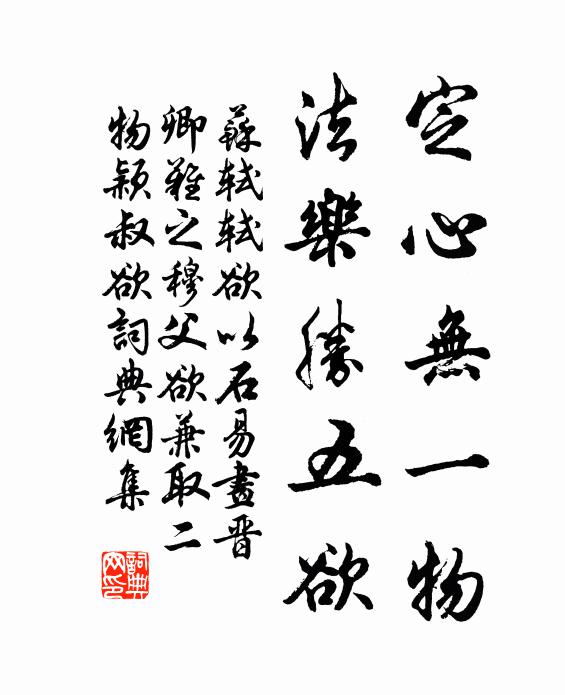 定心無一物
法樂勝五欲
蘇軾軾欲以石易畫晋
卿難之穆父欲兼取二
物穎叔欲詞典網集
詞典網印